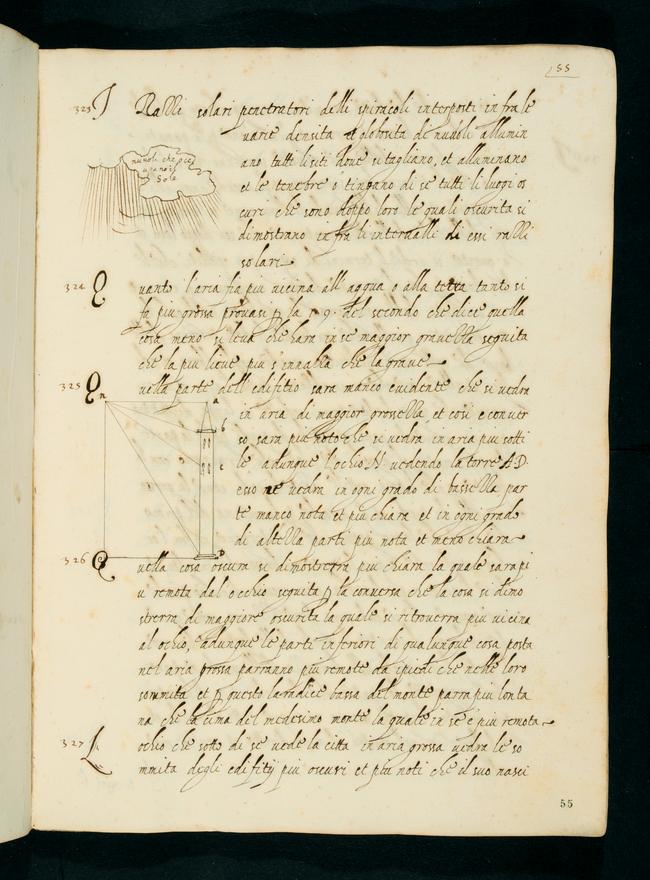 55
323 I Razzi solari penetratori delli spiracoli interposti infra le
varie densita et globosita di nuvoli allumin
ano tutti li siti dove si tagliano, et alluminano
et le tenebre o tingano di se tutti li luogi os
curi che sono doppo loro le quali oscurita si
dimostrano infra li intervalli di essi razzi
solari
nuvoli che pie
Sole
324 Q uanto l'aria fia piu vicina all'acqua o alla terra tanto si
fa piu grossa provasi p la 19. del secondo che dice quella
cosa meno si leva che hara in se maggior gravezza seguita
che la piu lieve piu s'innalza che la grave
325 Q uella parte dell edifitio sara manco evidente che si vedra
in aria di maggior grossezza, et cosi e conver
so sara piu noto che si vedra in aria piu sotti
le adunque l'ochio N vedendo la torre A D.
esso ne vedra in ogni grado di bassezza par
te manco nota et piu chiara et in ogni grado
di altezza parti piu nota et meno chiara
n a b c D
326 Q uella cosa oscura si dimosterra piu chiara la quale sara pi
u remota dal occhio seguita p la conversa che la cosa si dimo
sterra di maggiore oscurita la quale si ritroverra piu vicina
al ochio, adunque le parti inferiori di qualunque cosa posta
nel aria grossa parranno piu remote da i piedi che nelle loro
sommita et p questo la radice bassa del monte parra piu lonta
na che la cima del medesimo monte la quale in se e piu remota
327 L ochio che sotto di se vede la citta in aria grossa vedra le so
mmita degli edifitij piu oscuri et piu noti che il suo nasci
55